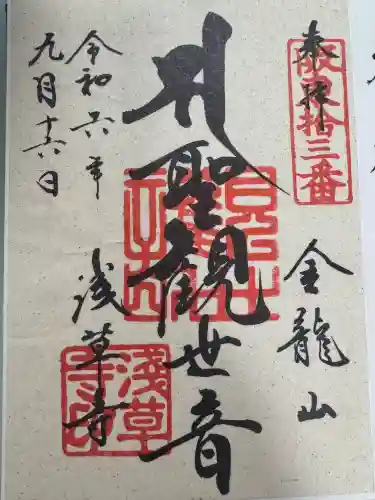 奉拝
坂東拾三番
金龍山
聖観世音
浅草寺
令和六年
九月十六日
淺草寺印